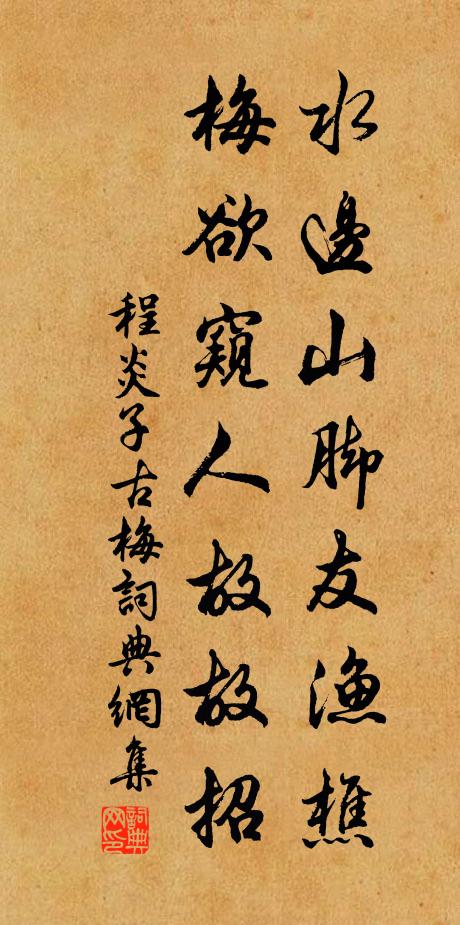 水邊山脚友漁樵
梅欲窺人故故招
程炎子古梅詞典網集
詞典网印